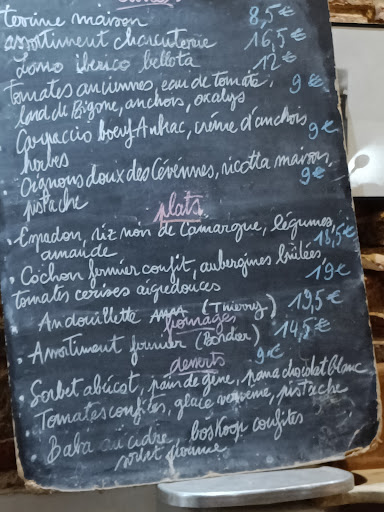 terrine maison 8,5€
assortiment charcuterie 16,5€
Lomo iberico bellota 12€
tomates anciennes, eau de tomate, 9€
lard de Bigorre, anchois, oxalys
Carpaccio boeuf Aubrac, crème d'anchois
herbes 9€
Oignons doux des Cévennes, ricotta maison,
pistache 9€
plats
• Espadon, riz noir de Camargue, légumes, 18,5€
amande
• Cochon fermier confit, aubergines brûlées,
tomates cerises aigredouces 19€
Andouillette (Thierry) 19,5€
fromages
• Assortiment fermier (Bordier) 14,5€
desserts 9€
• Sorbet abricot, pain de gêne, pana chocolat blanc
• Tomates confites, glace verveine, pistache
• Baba au cidre, boskoop confites
sorbet pomme